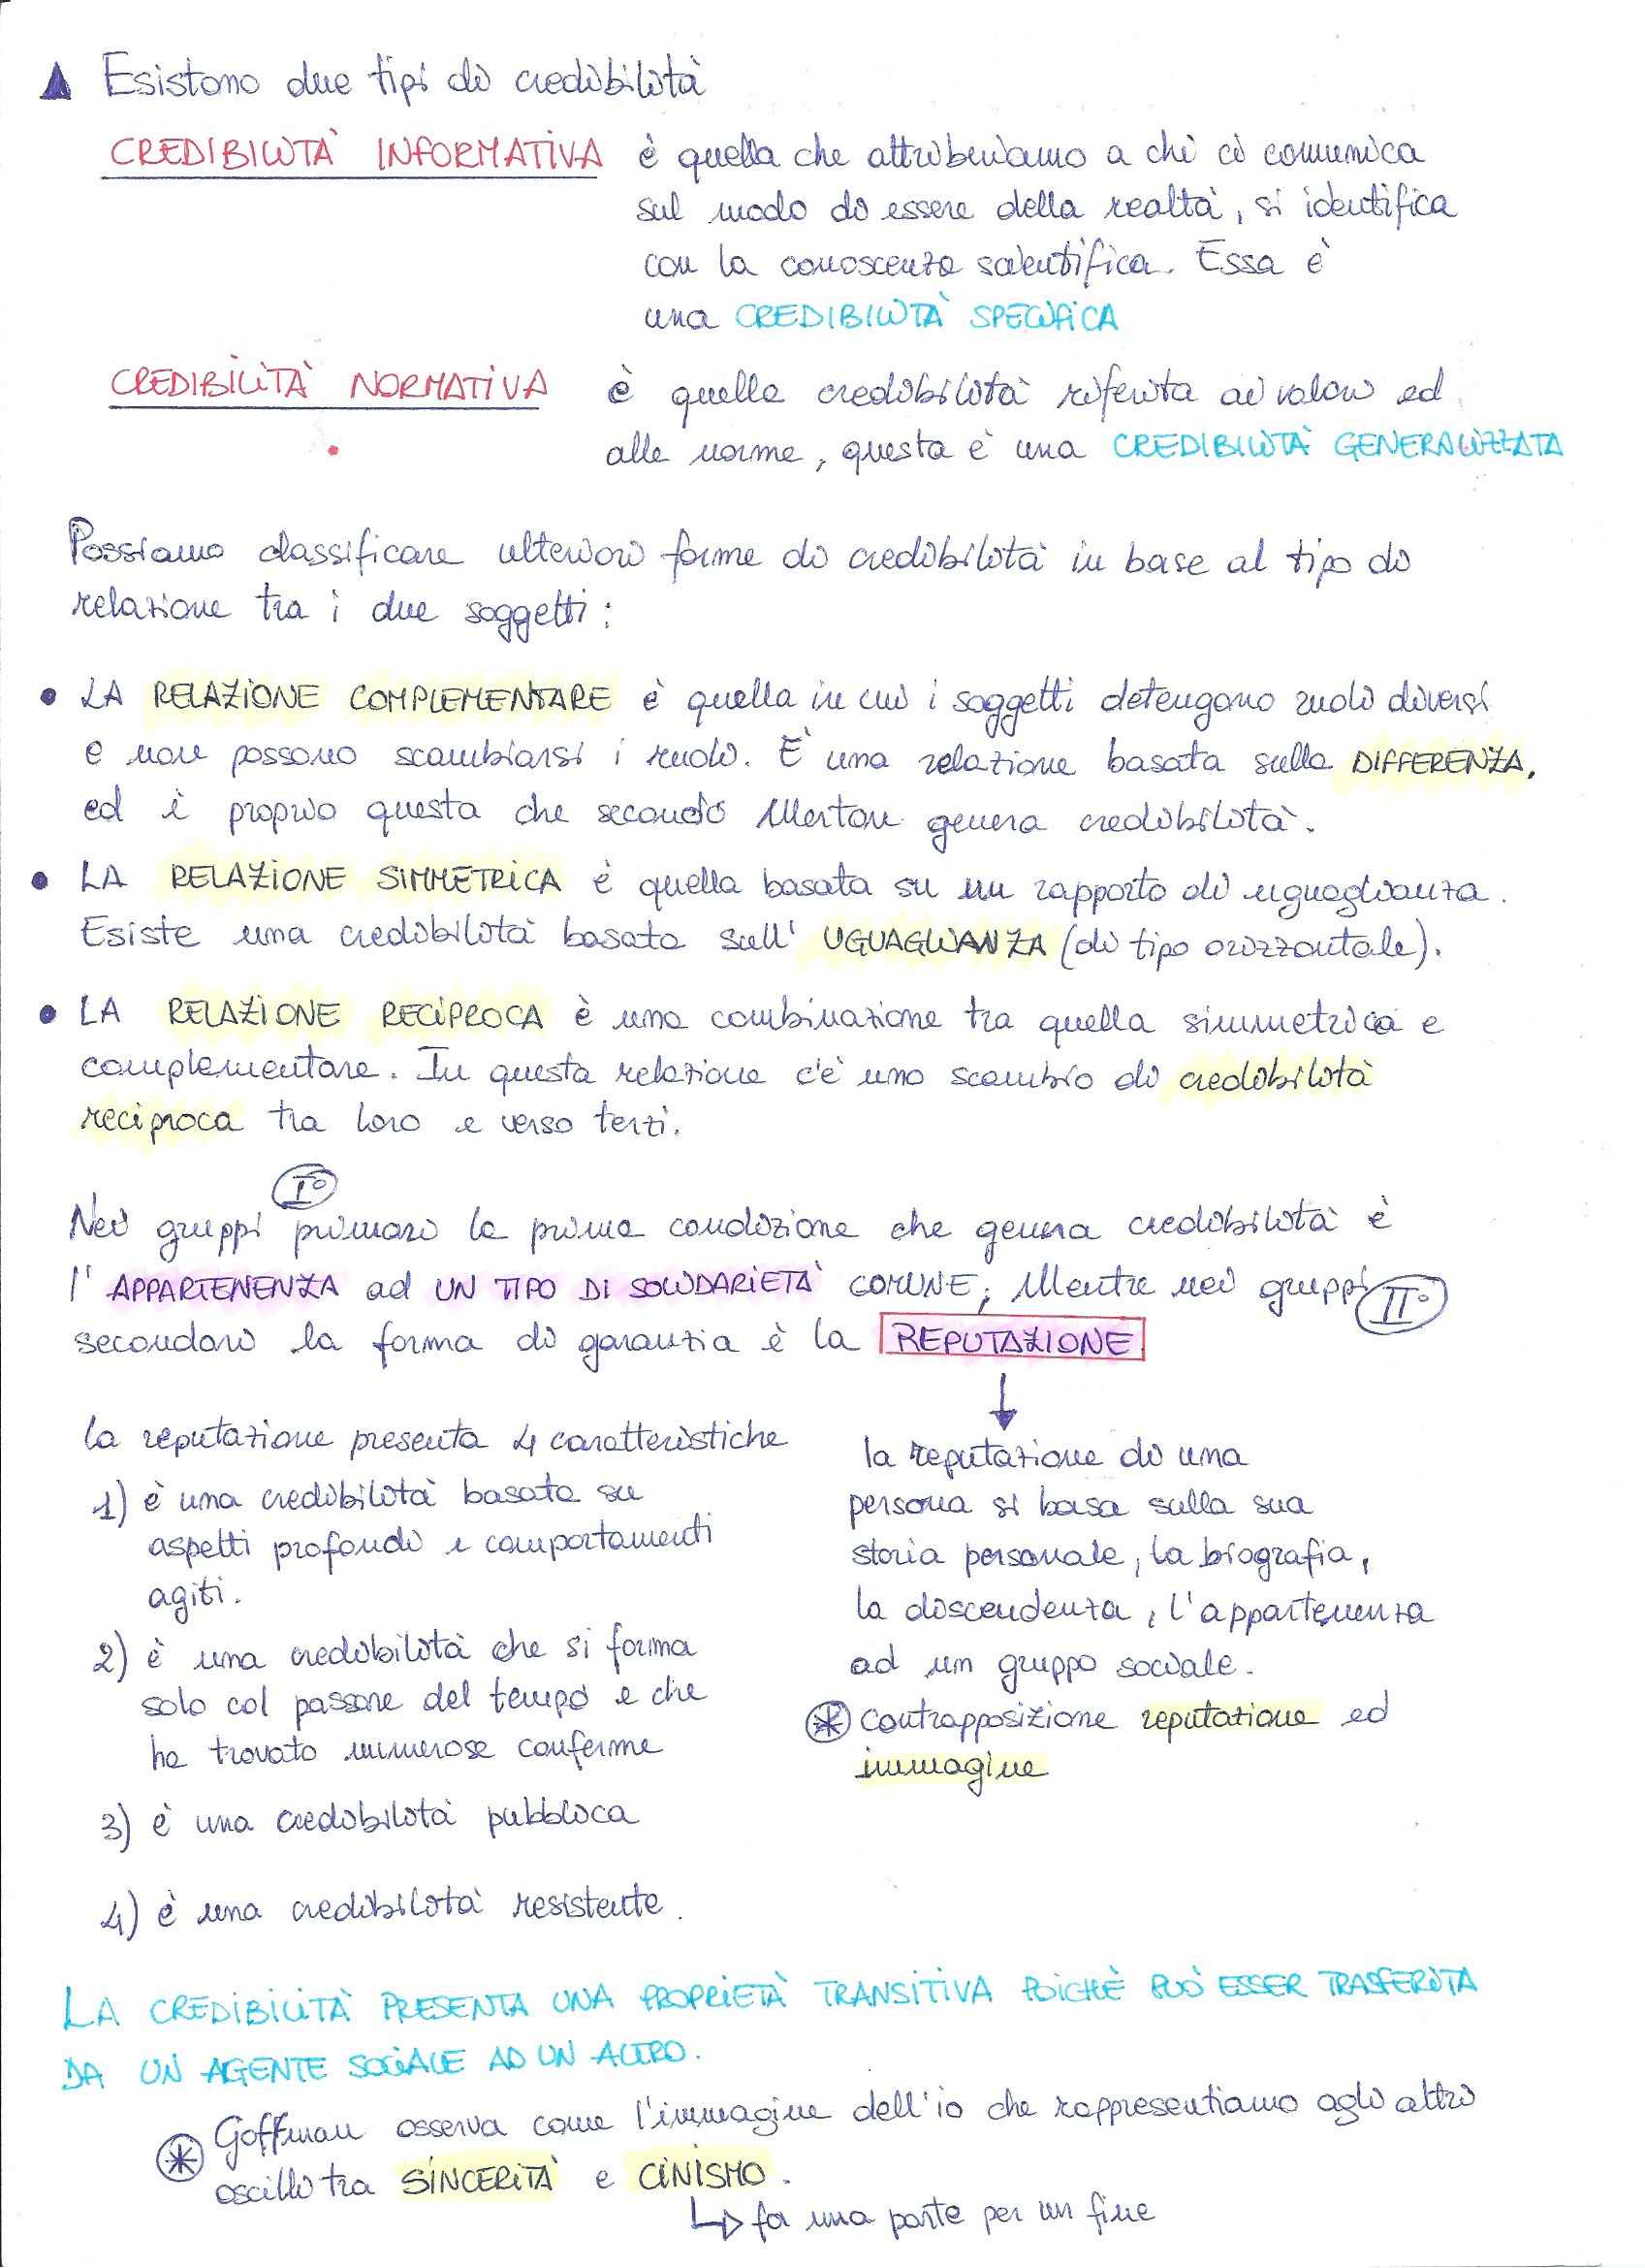 Esistono due tipi di credibilità
CREDIBILITÀ INFORMATIVA è quella che attribuiamo a chi ci comunica
sul modo di essere della realtà, si identifica
con la conoscenza scientifica. Essa è
una CREDIBILITÀ SPECIFICA
CREDIBILITÀ NORMATIVA è quella credibilità riferita ai valori ed
alle norme, questa è una CREDIBILITÀ GENERALIZZATA
Possiamo classificare ulteriori forme di credibilità in base al tipo di
relazione tra i due soggetti:
• LA RELAZIONE COMPLEMENTARE è quella in cui i soggetti detengono ruoli diversi
e non possono scambiarsi i ruoli. È una relazione basata sulla DIFFERENZA,
ed è proprio questa che secondo Merton genera credibilità.
• LA RELAZIONE SIMMETRICA è quella basata su un rapporto di uguaglianza.
Esiste una credibilità basata sull' UGUAGLIANZA (di tipo orizzontale).
• LA RELAZIONE RECIPROCA è una combinazione tra quella simmetrica e
complementare. In questa relazione c'è uno scambio di credibilità
reciproca tra loro e verso terzi.
I°
Nei gruppi primari la prima condizione che genera credibilità è
l' APPARTENENZA ad UN TIPO DI SOLIDARIETÀ COMUNE; Mentre nei gruppi II°
secondari la forma di garanzia è la REPUTAZIONE
la reputazione presenta 4 caratteristiche
1) è una credibilità basata su
aspetti profondi e comportamenti
agiti.
2) è una credibilità che si forma
solo col passare del tempo e che
ha trovato numerose conferme
3) è una credibilità pubblica
4) è una credibilità resistente.
la reputazione di una
persona si basa sulla sua
storia personale, la biografia,
la discendenza, l'appartenenza
ad un gruppo sociale.
* contrapposizione reputazione ed
immagine
LA CREDIBILITÀ PRESENTA UNA PROPRIETÀ TRANSITIVA POICHÈ PUÒ ESSER TRASFERITA
DA UN AGENTE SOCIALE AD UN ALTRO.
* Goffman osserva come l'immagine dell'io che rappresentiamo agli altri
oscilli tra SINCERITÀ e CINISMO.
fa una parte per un fine